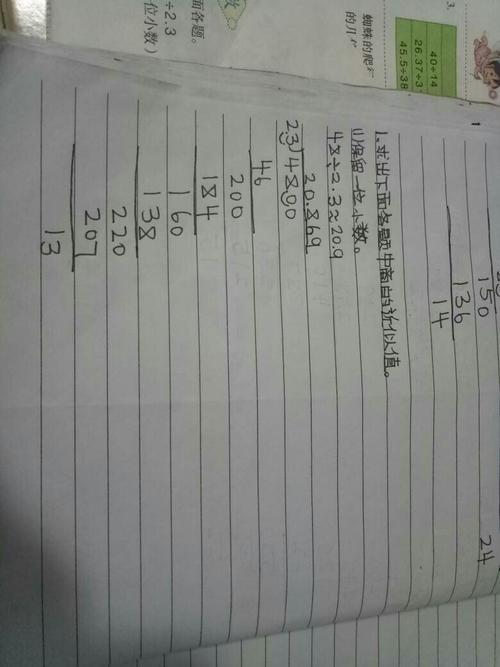 3.
40÷14
26.37÷3
45.5÷38
蜘蛛的爬
的几
面各题。
÷2.3
位小数)
150
136
14
24
1
1.求出下面各题中商的近似值。
(1)保留一位小数。
48÷2.3≈20.9
20.869
2.3)48.00
46
200
184
160
138
220
207
13